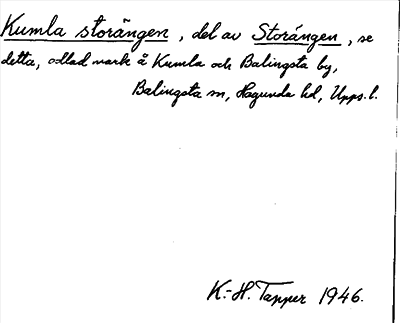 Kumla storängen, del av Storängen, se
detta, odlad mark å Kumla och Balingsta by,
Balingsta sn, Hagunda hd, Upps. l.
K.-H. Tapper 1946.